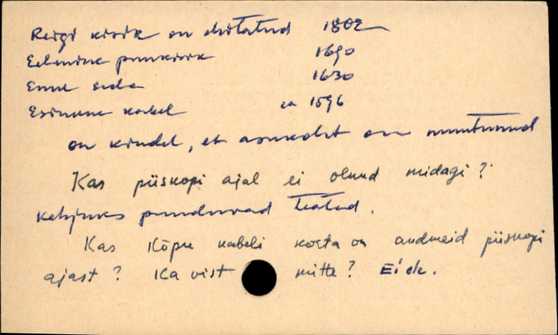 Reigi kirik on ehitatud 1802
Eelmine puukirik 1690
Enne seda 1630
Esimene kabel ca 1596
on kindel, et asukoht on muutunud
Kas piiskopi ajal ei olnud midagi?
kahjuks puuduvad teated.
Kas Kõpu kabeli kohta on andmeid piiskopi
ajast? Ka vist mitte? Ei ole.